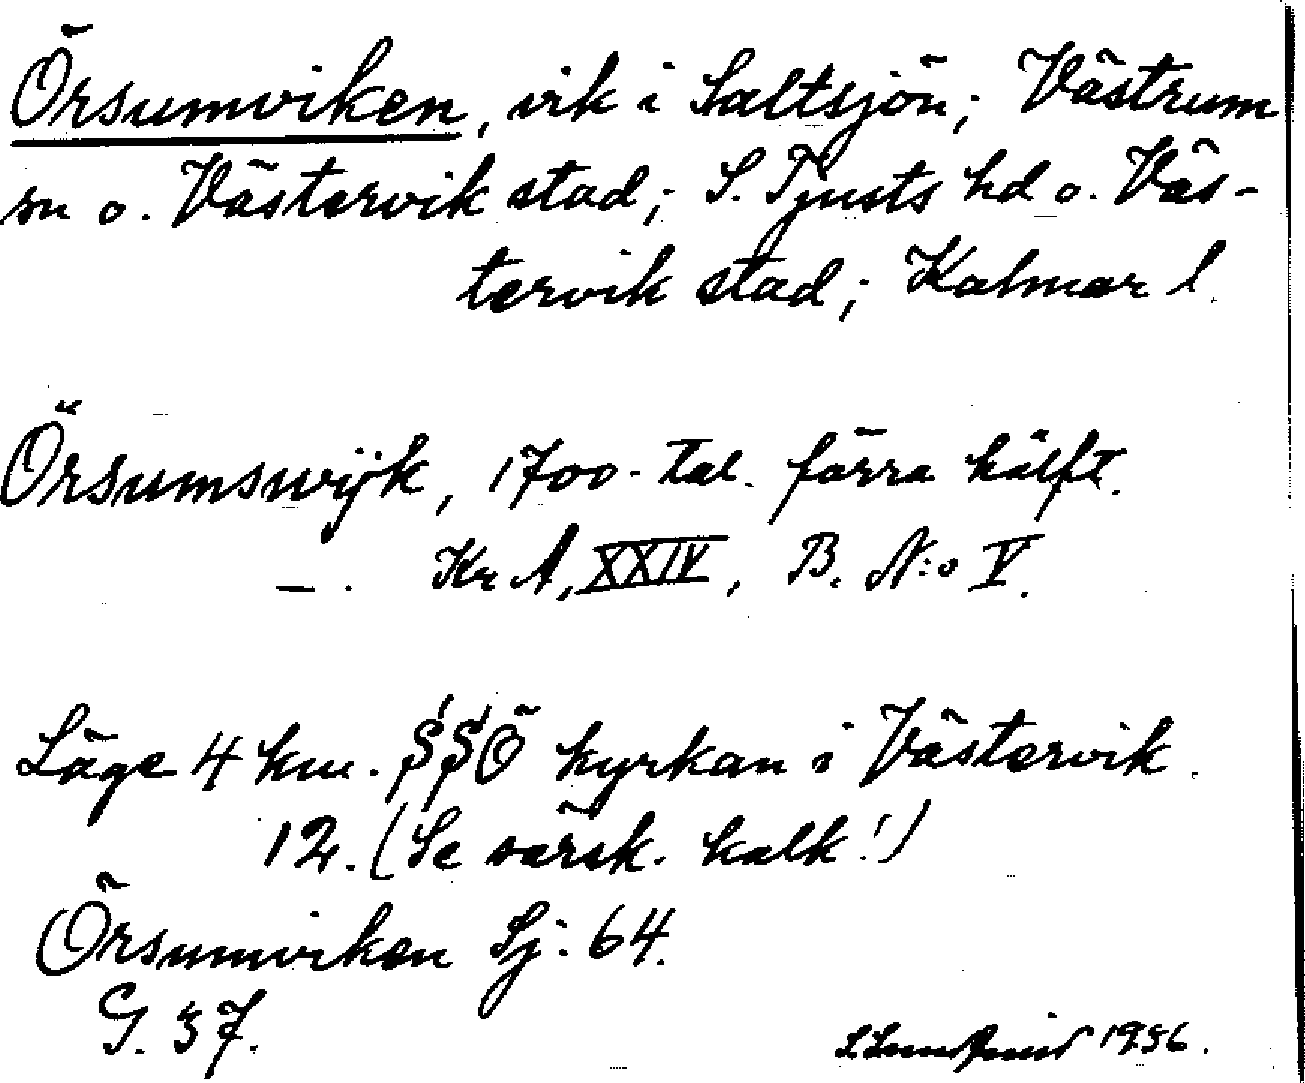 Örsumviken, vik i Saltsjön; Västrum
sn o. Västervik stad; S. Tjusts hd o. Väs-
tervik stad; Kalmar l.
Örsumswijk, 1700-tal. förra hälft.
—. Kr A, XXIV, B. N:o V.
Läge 4 km. SSÖ kyrkan i Västervik.
12. (Se särsk. kalk!)
Örsumviken Sj: 64.
G. 37.
1936.